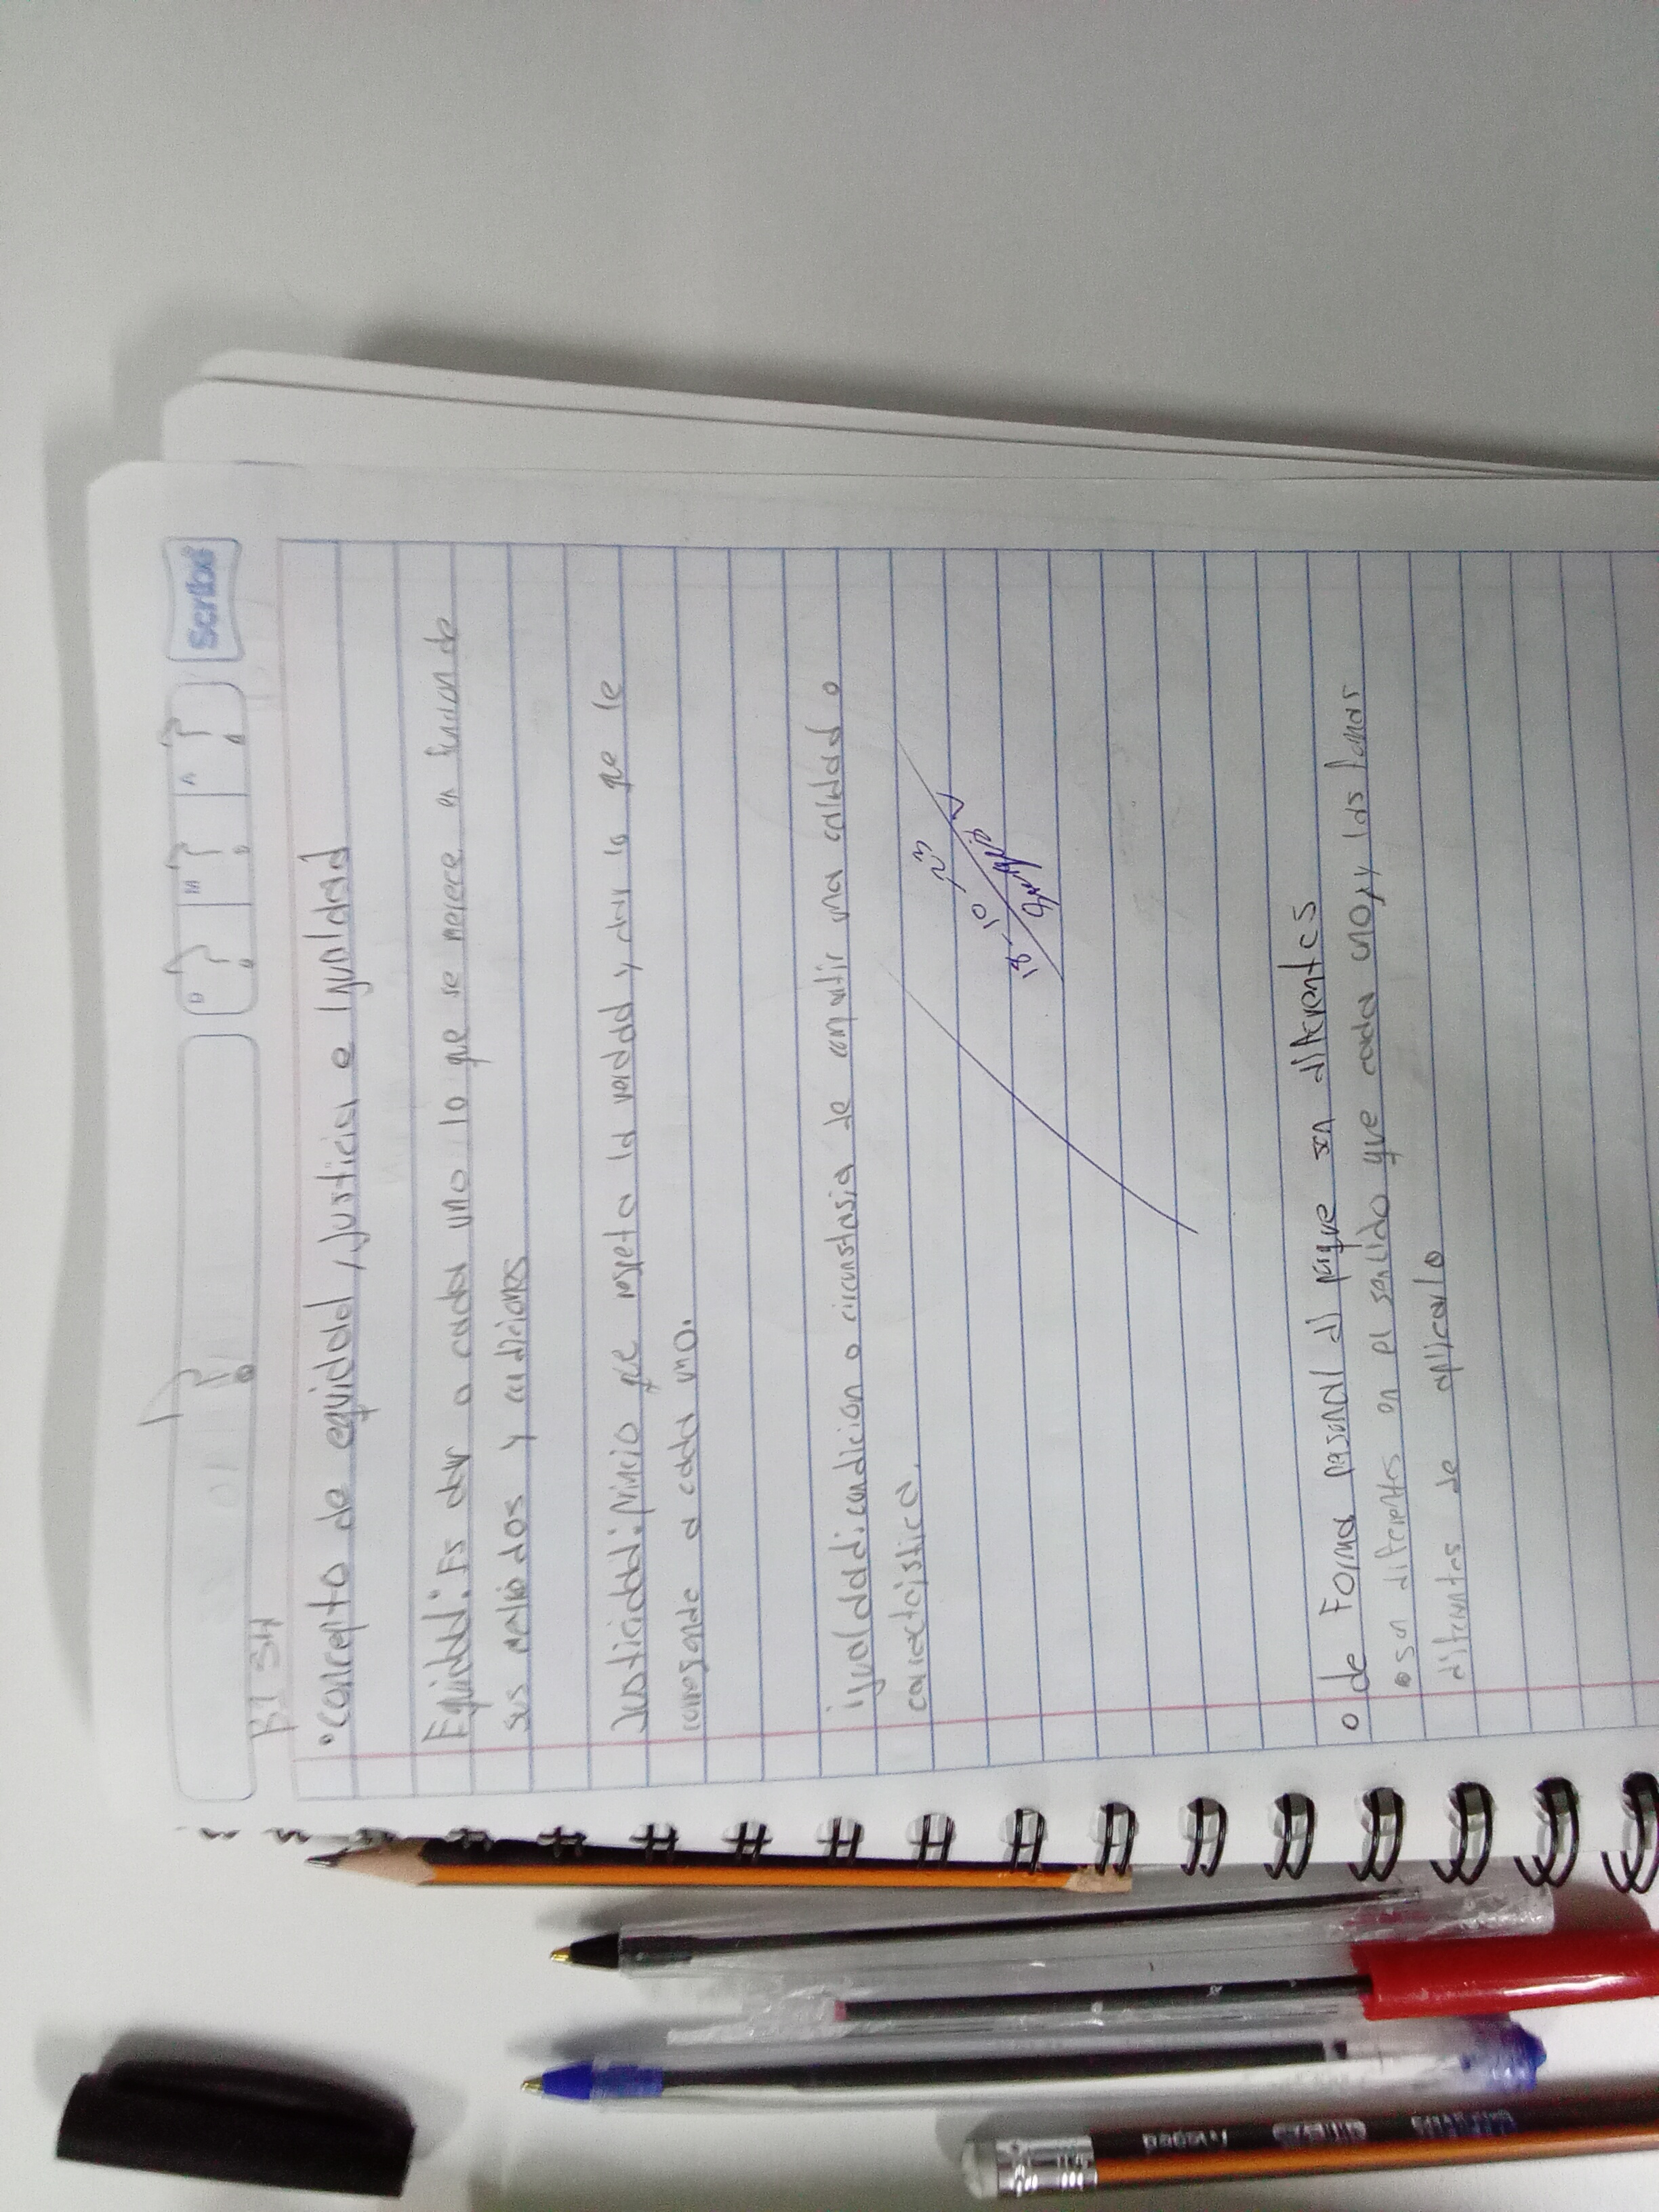 Scribe
D M A
B1 3H
•concepto de equidad, Justicia e Igualdad
Equidad: Es dar a cada uno lo que se merece en funcion de
sus meritos y condiciones
Justicidad: princio que respeta la verdad y dar lo que le
corresponde a cada uno.
igualdad: condicion o circunstasia de compartir una calidad o
caracteristica.
13-10-23
o de Forma personal di porque son diferentes
•son diferentes en el sentido que cada uno, y las formas
diferentes de aplicarlo